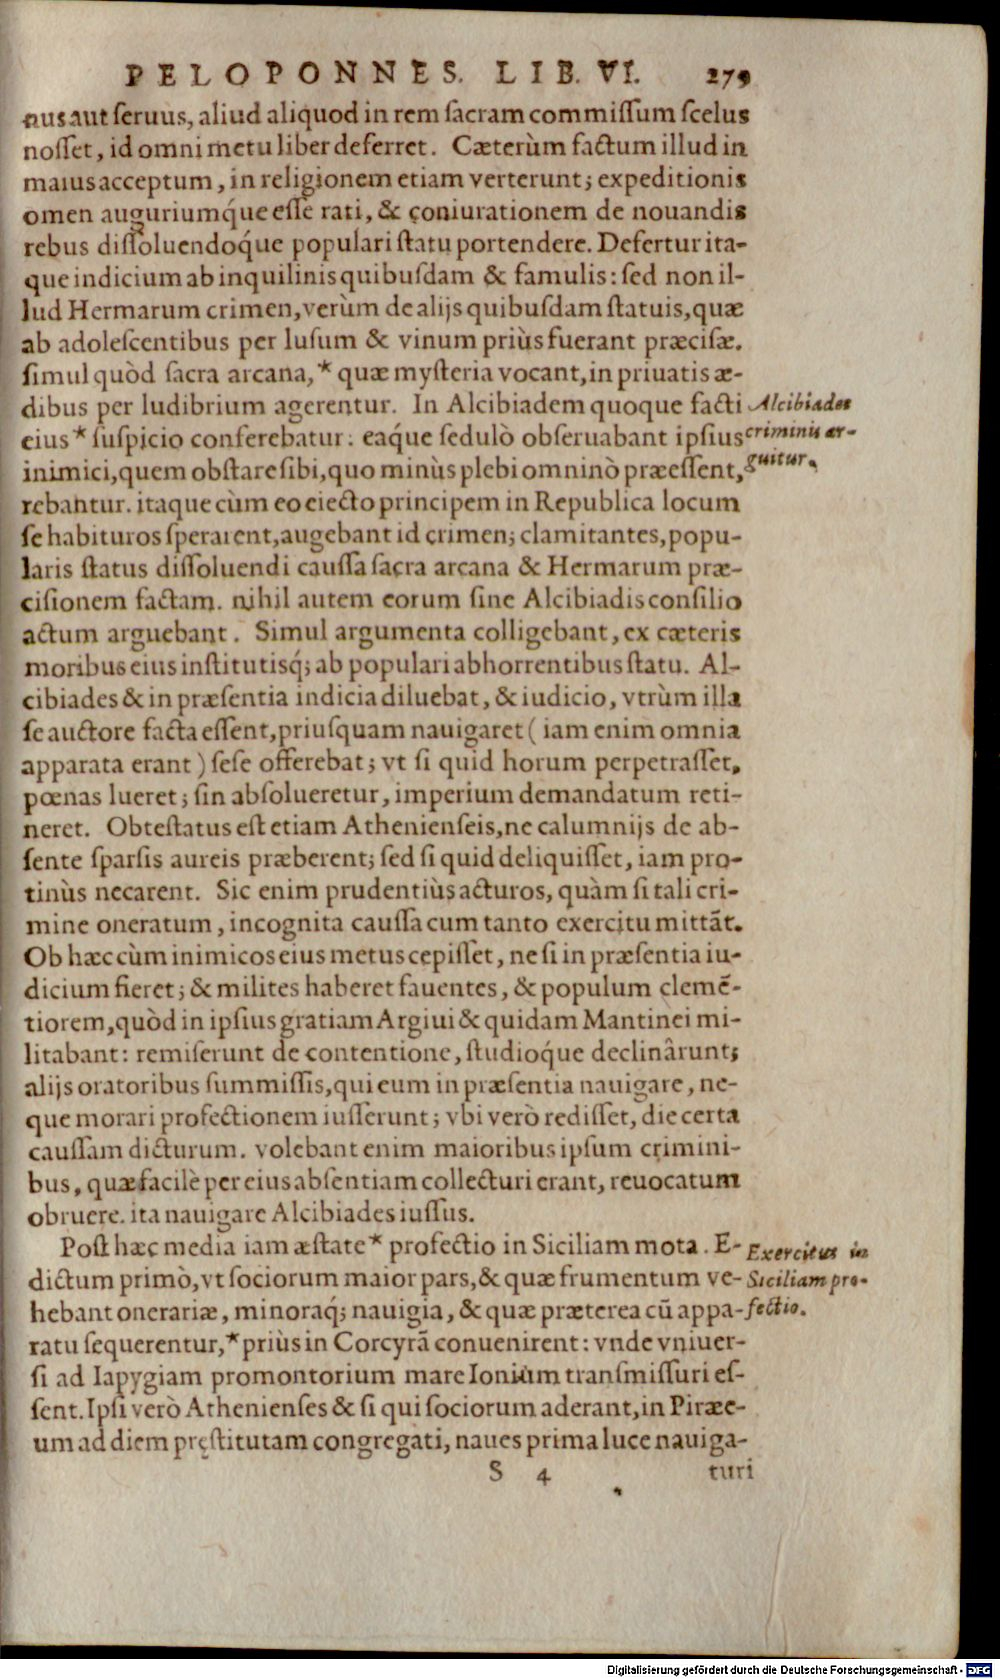 PELOPONNES. LIB. VI. 279
nus aut seruus, aliud aliquod in rem sacram commissum scelus
nosset, id omni metu liber deferret. Cæterùm factum illud in
maius acceptum, in religionem etiam verterunt; expeditionis
omen auguriumq́ue esse rati, & coniurationem de nouandis
rebus dissoluendoq́ue populari statu portendere. Defertur ita-
que indicium ab inquilinis quibusdam & famulis: sed non il-
lud Hermarum crimen, verùm de alijs quibusdam statuis, quæ
ab adolescentibus per lusum & vinum priùs fuerant præcisæ.
simul quòd sacra arcana, * quæ mysteria vocant, in priuatis æ-
dibus per ludibrium agerentur. In Alcibiadem quoque facti
eius * suspicio conferebatur: eaq́ue sedulò obseruabant ipsius
inimici, quem obstare sibi, quo minùs plebi omninò præessent,
rebantur. itaque cùm eo eiecto principem in Republica locum
se habituros sperarent, augebant id crimen; clamitantes, popu-
laris status dissoluendi caussa sacra arcana & Hermarum præ-
cisionem factam. nihil autem eorum sine Alcibiadis consilio
actum arguebant. Simul argumenta colligebant, ex cæteris
moribus eius institutisq́; ab populari abhorrentibus statu. Al-
cibiades & in præsentia indicia diluebat, & iudicio, vtrùm illa
se auctore facta essent, priusquam nauigaret ( iam enim omnia
apparata erant ) sese offerebat; vt si quid horum perpetrasset,
pœnas lueret; sin absolueretur, imperium demandatum reti-
neret. Obtestatus est etiam Athenienseis, ne calumnijs de ab-
sente sparsis aureis præberent; sed si quid deliquisset, iam pro-
tinùs necarent. Sic enim prudentiùs acturos, quàm si tali cri-
mine oneratum, incognita caussa cum tanto exercitu mittãt.
Ob hæc cùm inimicos eius metus cepisset, ne si in præsentia iu-
dicium fieret; & milites haberet fauentes, & populum clemẽ-
tiorem, quòd in ipsius gratiam Argiui & quidam Mantinei mi-
litabant: remiserunt de contentione, studioq́ue declinârunt;
alijs oratoribus summissis, qui eum in præsentia nauigare, ne-
que morari profectionem iusserunt; vbi verò redisset, die certa
caussam dicturum. volebant enim maioribus ipsum crimini-
bus, quæ facilè per eius absentiam collecturi erant, reuocatum
obruere. ita nauigare Alcibiades iussus.
Post hæc media iam æstate * profectio in Siciliam mota. E-
dictum primò, vt sociorum maior pars, & quæ frumentum ve-
hebant onerariæ, minoraq́; nauigia, & quæ præterea cũ appa-
ratu sequerentur, * priùs in Corcyrã conuenirent: vnde vniuer-
si ad Iapygiam promontorium mare Ionium transmissuri es-
sent. Ipsi verò Athenienses & si qui sociorum aderant, in Piræe-
um ad diem pręstitutam congregati, naues prima luce nauiga-
S 4 turi
Alcibiades
criminis ar-
guitur.
Exercitus in
Siciliam pro-
fectio.
Digitalisierung gefördert durch die Deutsche Forschungsgemeinschaft - DFG